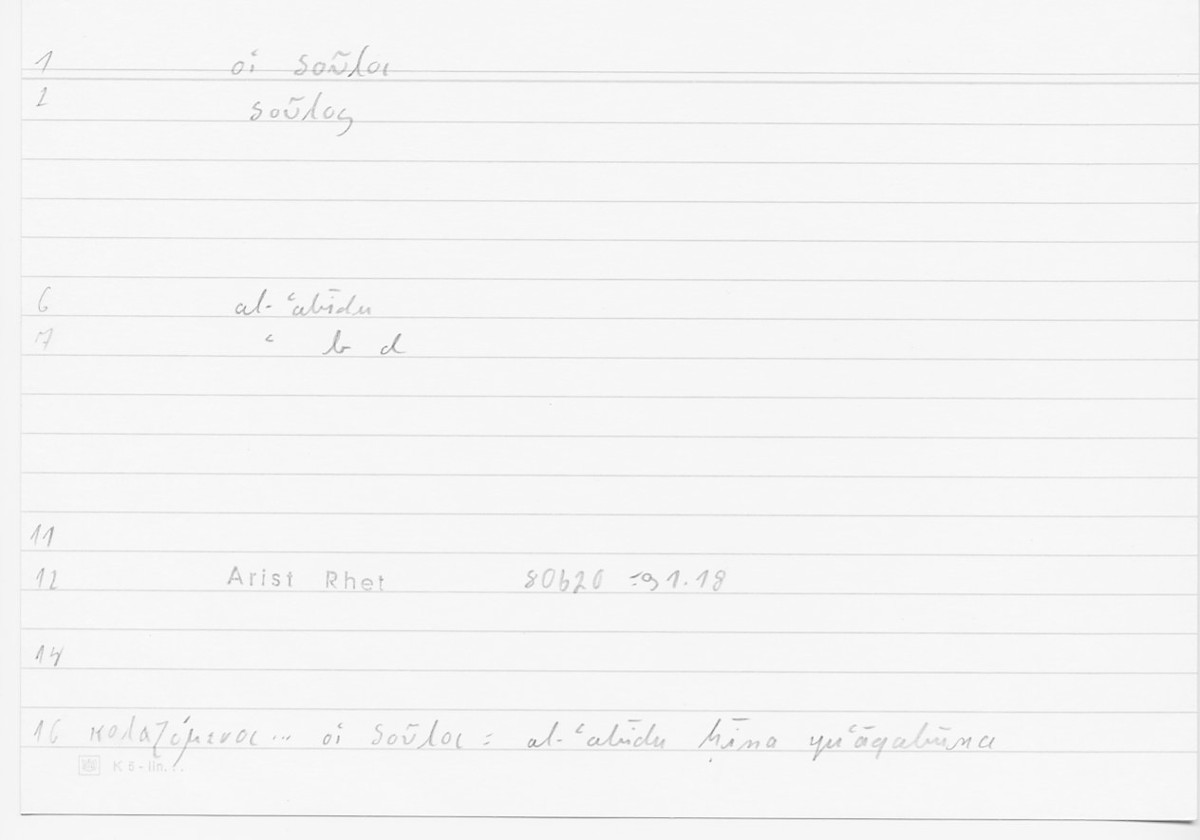 1 οἱ δοῦλοι
2 δοῦλος
6 al-ʿabīdu
7 ʿ b d
11
12 Arist Rhet 80b20 =91.18
14
16 κολαζόμενοι... οἱ δοῦλοι : al-ʿabīdu ḥīna yuʿāqabūna
K 5-lin.